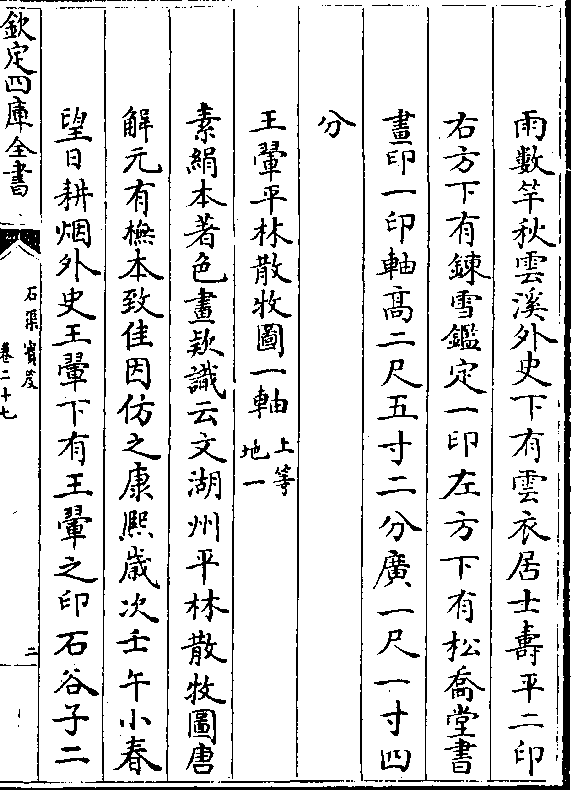 雨數竿秋雲溪外史下有雲衣居士壽平二印
右方下有鍊雪鑑定一印左方下有松喬堂書
畫印一印軸高二尺五寸二分廣一尺一寸四
分
王翬平林散牧圖一軸 上等
地一
素絹本著色畫欵識云文湖州平林散牧圖唐
解元有橅本致佳因仿之康熙歲次壬午小春
望日耕烟外史王翬下有王翬之印石谷子二
欽定四庫全書
石渠寳笈
卷二十七
二